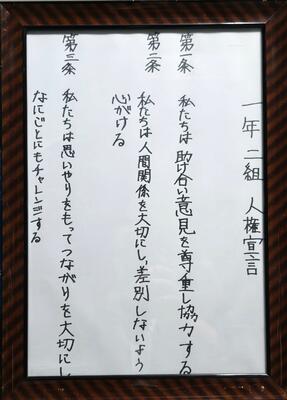 一年二組 人権宣言
第一条 私たちは助け合い意見を尊重し協力する
第二条 私たちは人間関係を大切にし、差別しないよう
心がける
第三条 私たちは思いやりをもってつながりを大切にし
なにごとにもチャレンジする